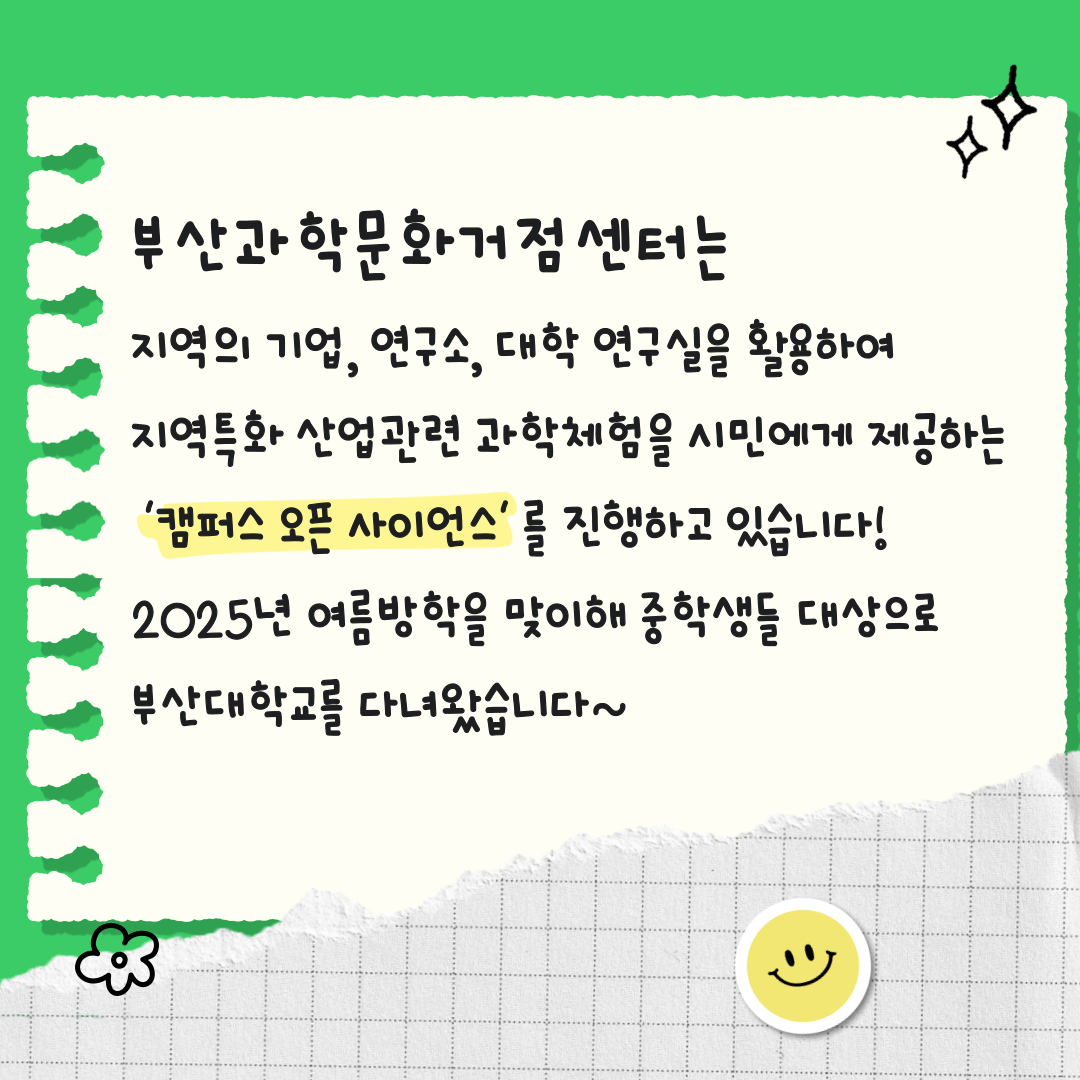 부산과학문화거점센터는
지역의 기업, 연구소, 대학 연구실을 활용하여
지역특화 산업관련 과학체험을 시민에게 제공하는
'캠퍼스 오픈 사이언스'를 진행하고 있습니다!
2025년 여름방학을 맞이해 중학생들 대상으로
부산대학교를 다녀왔습니다~